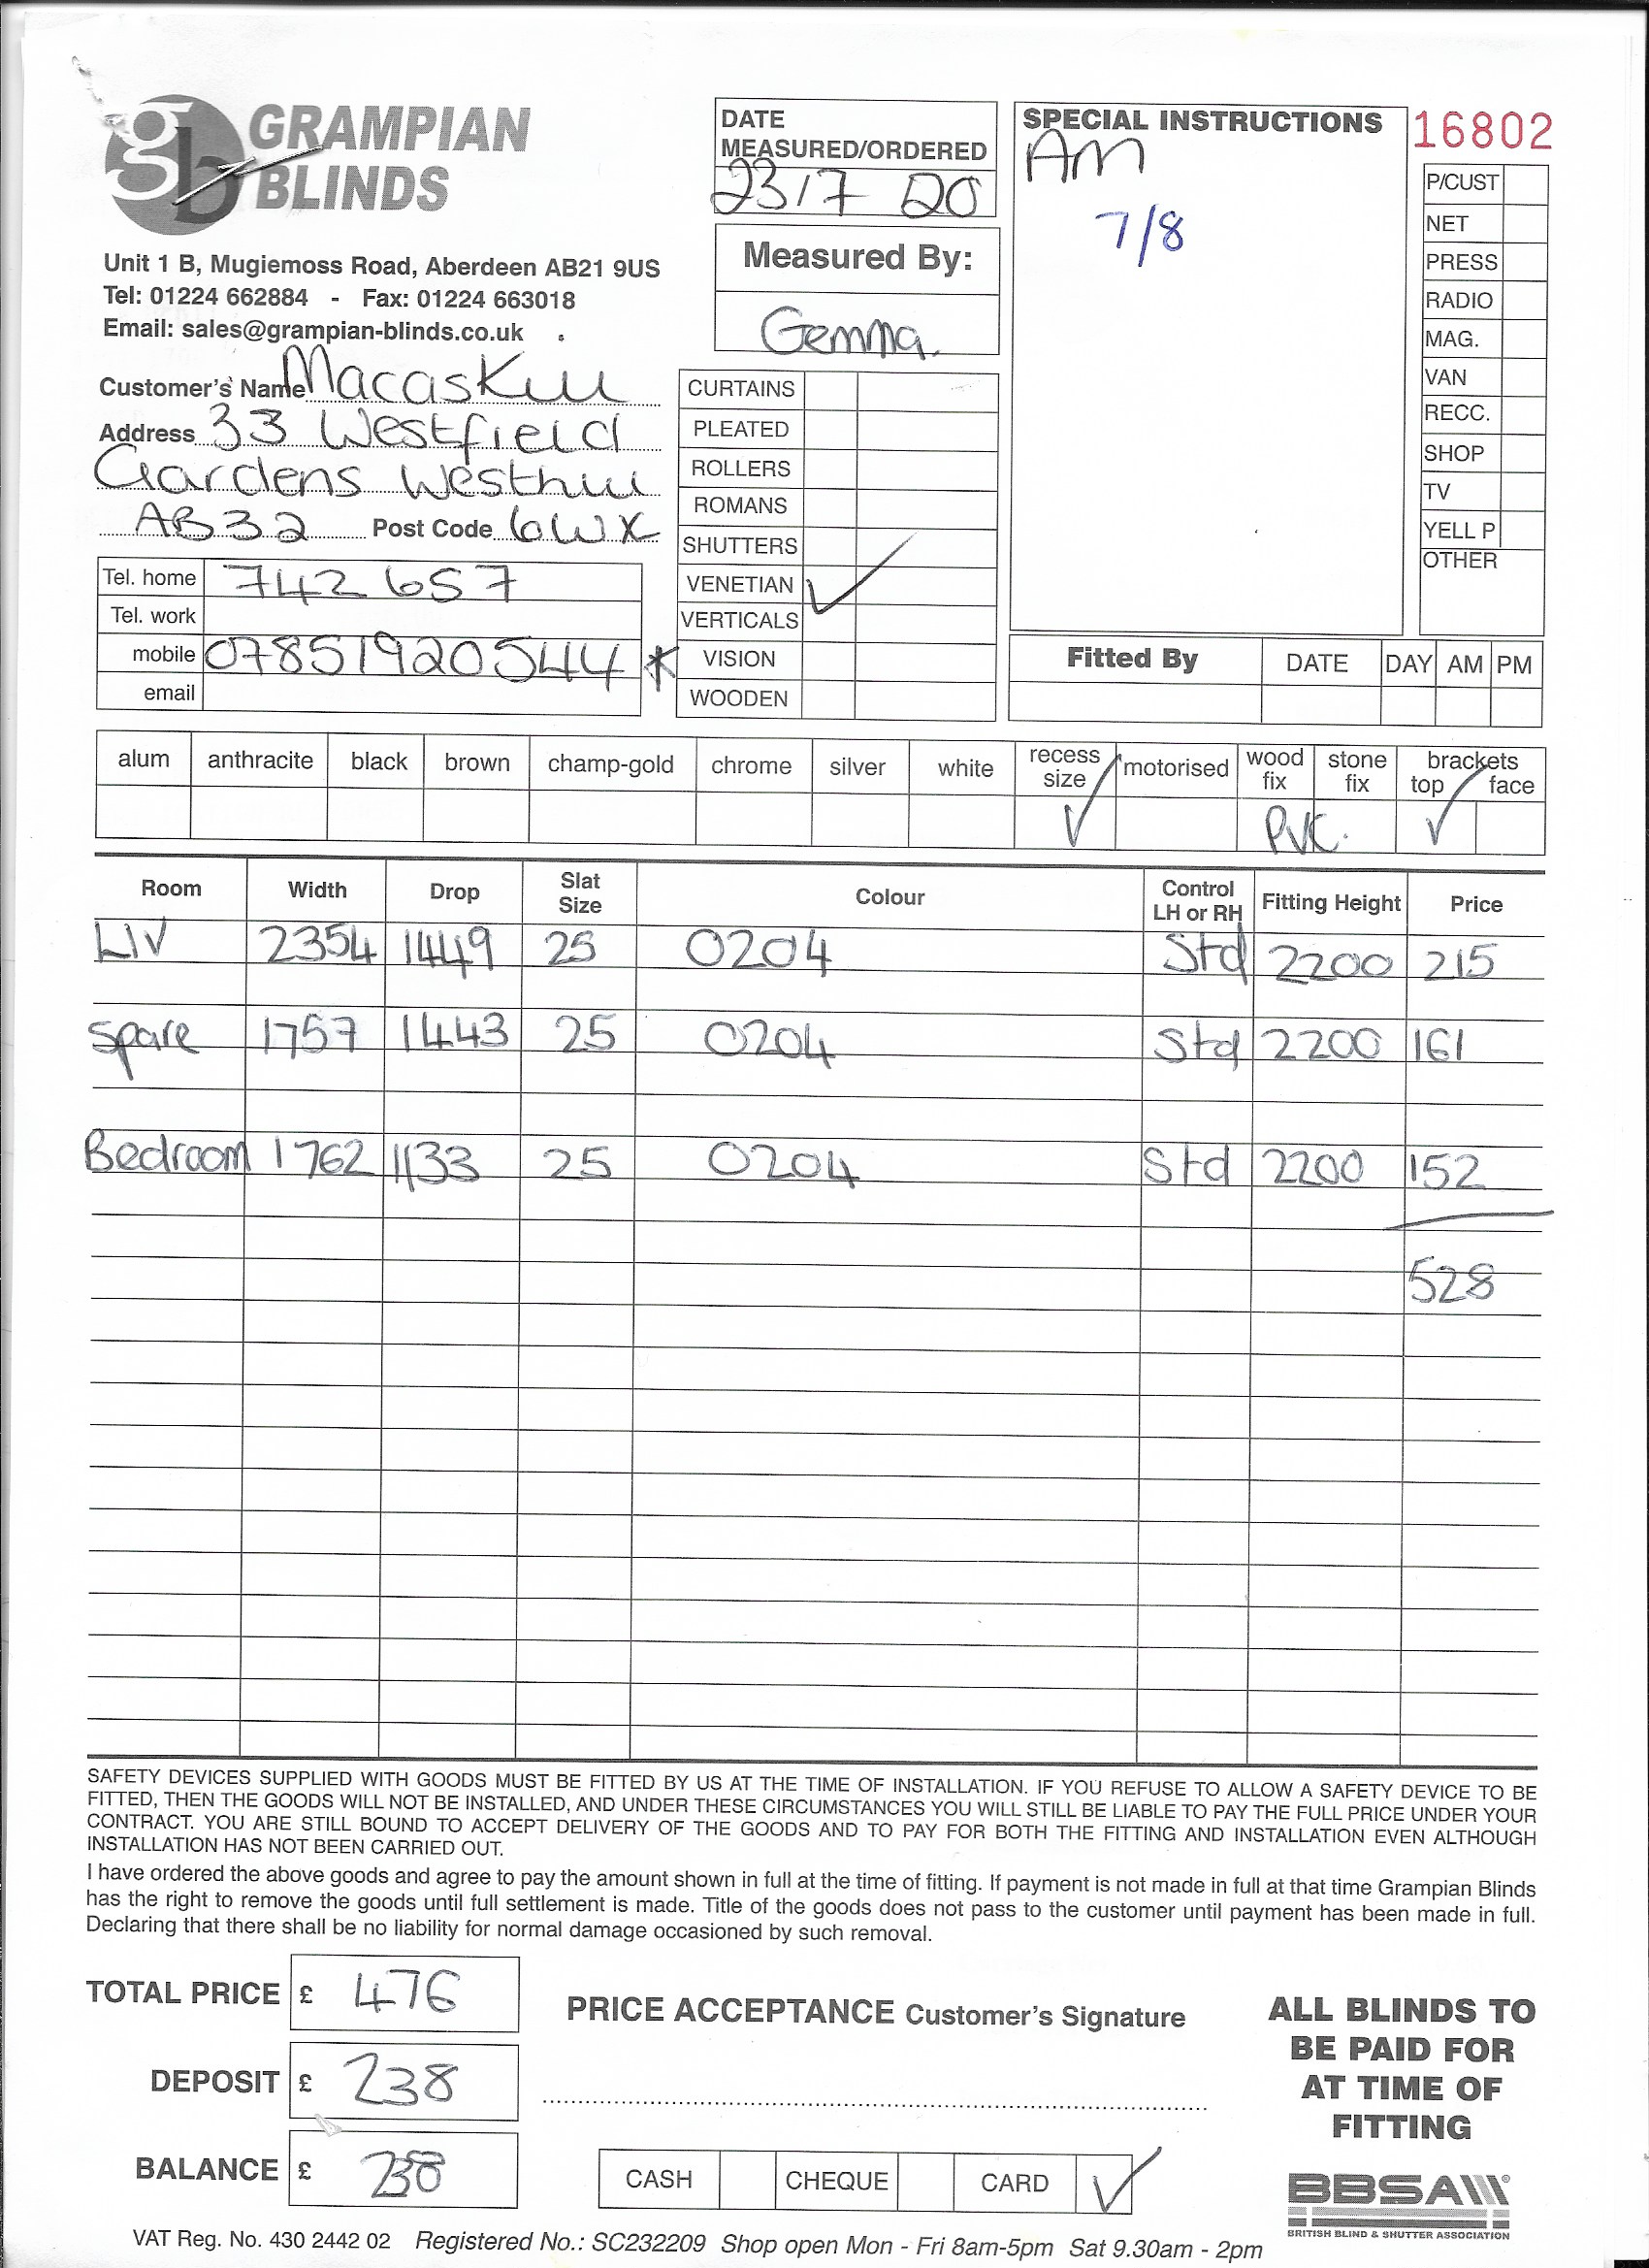 gb GRAMPIAN
BLINDS
Unit 1 B, Mugiemoss Road, Aberdeen AB21 9US
Tel: 01224 662884 - Fax: 01224 663018
Email: sales@grampian-blinds.co.uk
DATE
MEASURED/ORDERED
23/7 20
Measured By:
Gemma.
SPECIAL INSTRUCTIONS
AM
7/8
16802
P/CUST
NET
PRESS
RADIO
MAG.
VAN
RECC.
SHOP
TV
YELL P
OTHER
Customer's Name Macaskill
Address 33 Westfield
Gardens Westhill
AB32 Post Code 6WX
Tel. home 742 657
Tel. work
mobile 07851920544 *
email
CURTAINS
PLEATED
ROLLERS
ROMANS
SHUTTERS
VENETIAN ✓
VERTICALS
VISION
WOODEN
Fitted By DATE DAY AM PM
alum anthracite black brown champ-gold chrome silver white recess size motorised wood fix stone fix brackets top face
✓ PVC. ✓
Room Width Drop Slat Size Colour Control LH or RH Fitting Height Price
LIV 2354 1449 25 0204 Std 2200 215
Spare 1757 1443 25 0204 Std 2200 161
Bedroom 1762 1133 25 0204 Std 2200 152
528
SAFETY DEVICES SUPPLIED WITH GOODS MUST BE FITTED BY US AT THE TIME OF INSTALLATION. IF YOU REFUSE TO ALLOW A SAFETY DEVICE TO BE
FITTED, THEN THE GOODS WILL NOT BE INSTALLED, AND UNDER THESE CIRCUMSTANCES YOU WILL STILL BE LIABLE TO PAY THE FULL PRICE UNDER YOUR
CONTRACT. YOU ARE STILL BOUND TO ACCEPT DELIVERY OF THE GOODS AND TO PAY FOR BOTH THE FITTING AND INSTALLATION EVEN ALTHOUGH
INSTALLATION HAS NOT BEEN CARRIED OUT.
I have ordered the above goods and agree to pay the amount shown in full at the time of fitting. If payment is not made in full at that time Grampian Blinds
has the right to remove the goods until full settlement is made. Title of the goods does not pass to the customer until payment has been made in full.
Declaring that there shall be no liability for normal damage occasioned by such removal.
TOTAL PRICE £ 476
DEPOSIT £ 238
BALANCE £ 238
PRICE ACCEPTANCE Customer's Signature
CASH CHEQUE CARD ✓
ALL BLINDS TO
BE PAID FOR
AT TIME OF
FITTING
BBSA
BRITISH BLIND & SHUTTER ASSOCIATION
VAT Reg. No. 430 2442 02 Registered No.: SC232209 Shop open Mon - Fri 8am-5pm Sat 9.30am - 2pm